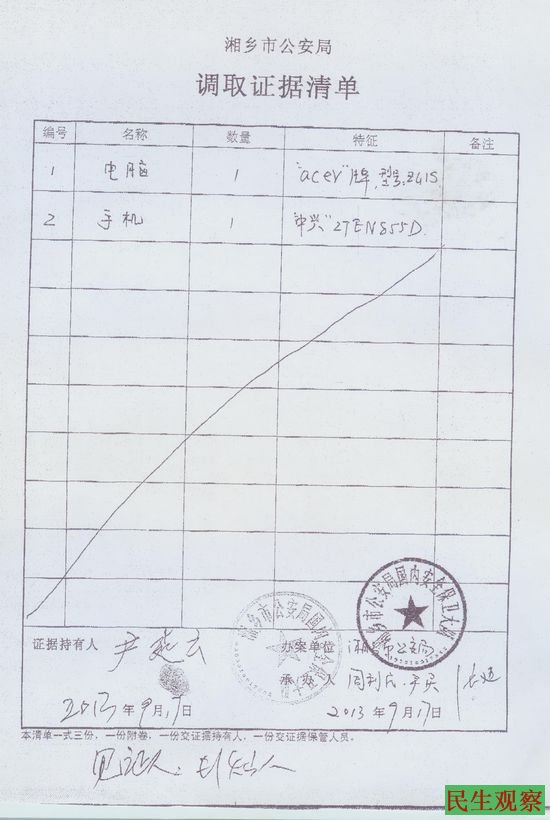 湘乡市公安局
调取证据清单
编号 名称 数量 特征 备注
1 电脑 1 "acer"牌,型号:Z41S
2 手机 1 "中兴"ZTEN855D.
湘乡市公安局国内安全保卫大队
证据持有人 尹 云
办案单位 湘乡市公安局
承办人 周利
2013年9月17日
2013年9月17日
本清单一式三份,一份附卷,一份交证据持有人,一份交证据保管人员。
见证人:
民生观察